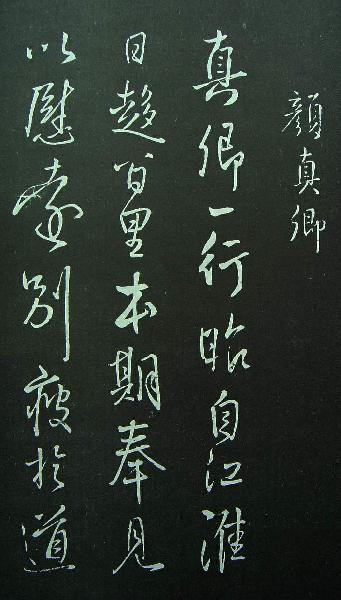 顏真卿
真卿一行昨自江淮
日趍百里本期奉見
以慰遠別疲於道